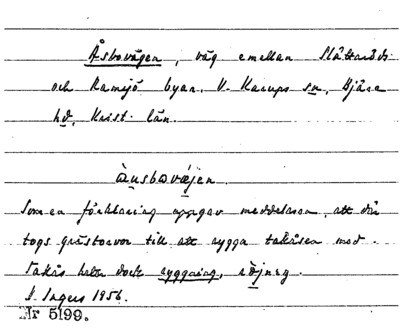 Åsbovägen, väg emellan Slättaröds
och Ramsjö byar, V. Karups sn, Bjäre
hd, Krist. län.
àusbovæjen.
Som en förklaring uppgav meddelaren, att där
togs grästorvor till att rygga takåsen med.
Takås hette dock ryggning,
I. Ingers 1956.
Nr 5199.